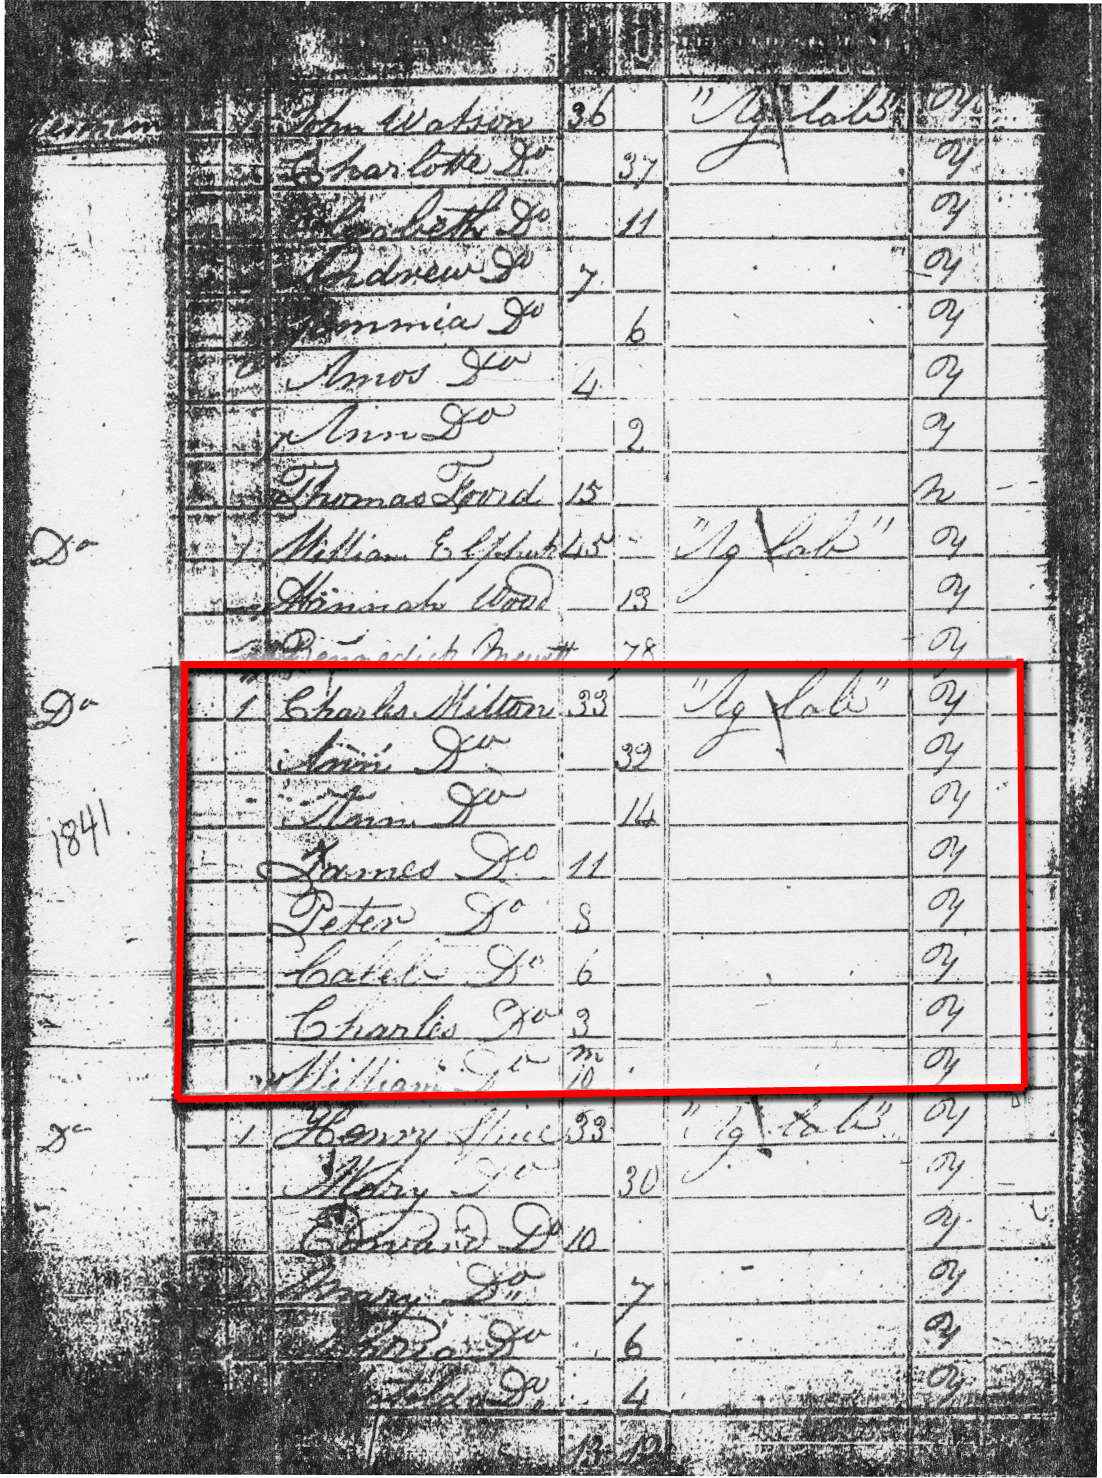 1 John Watson 36 "Ag lab" y
Charlotte Do 37 y
Elizabeth Do 11 y
Andrew Do 7 y
Do 6 y
Amos Do 4 y
Ann Do 2 y
Thomas Foord 15 n
Do 1 William 45 "Ag lab" y
Hannah Wood 13 y
78 y
Do 1 Charles Milton 33 "Ag lab" y
Ann Do 39 y
Ann Do 14 y
1841
James Do 11 y
Peter Do 8 y
Caleb Do 6 y
Charles Do 3 y
William Do m 10 y
Do 1 Henry 33 "Ag lab" y
Mary Do 30 y
Edward Do 10 y
Do 7 y
Do 6 y
Do 4 y